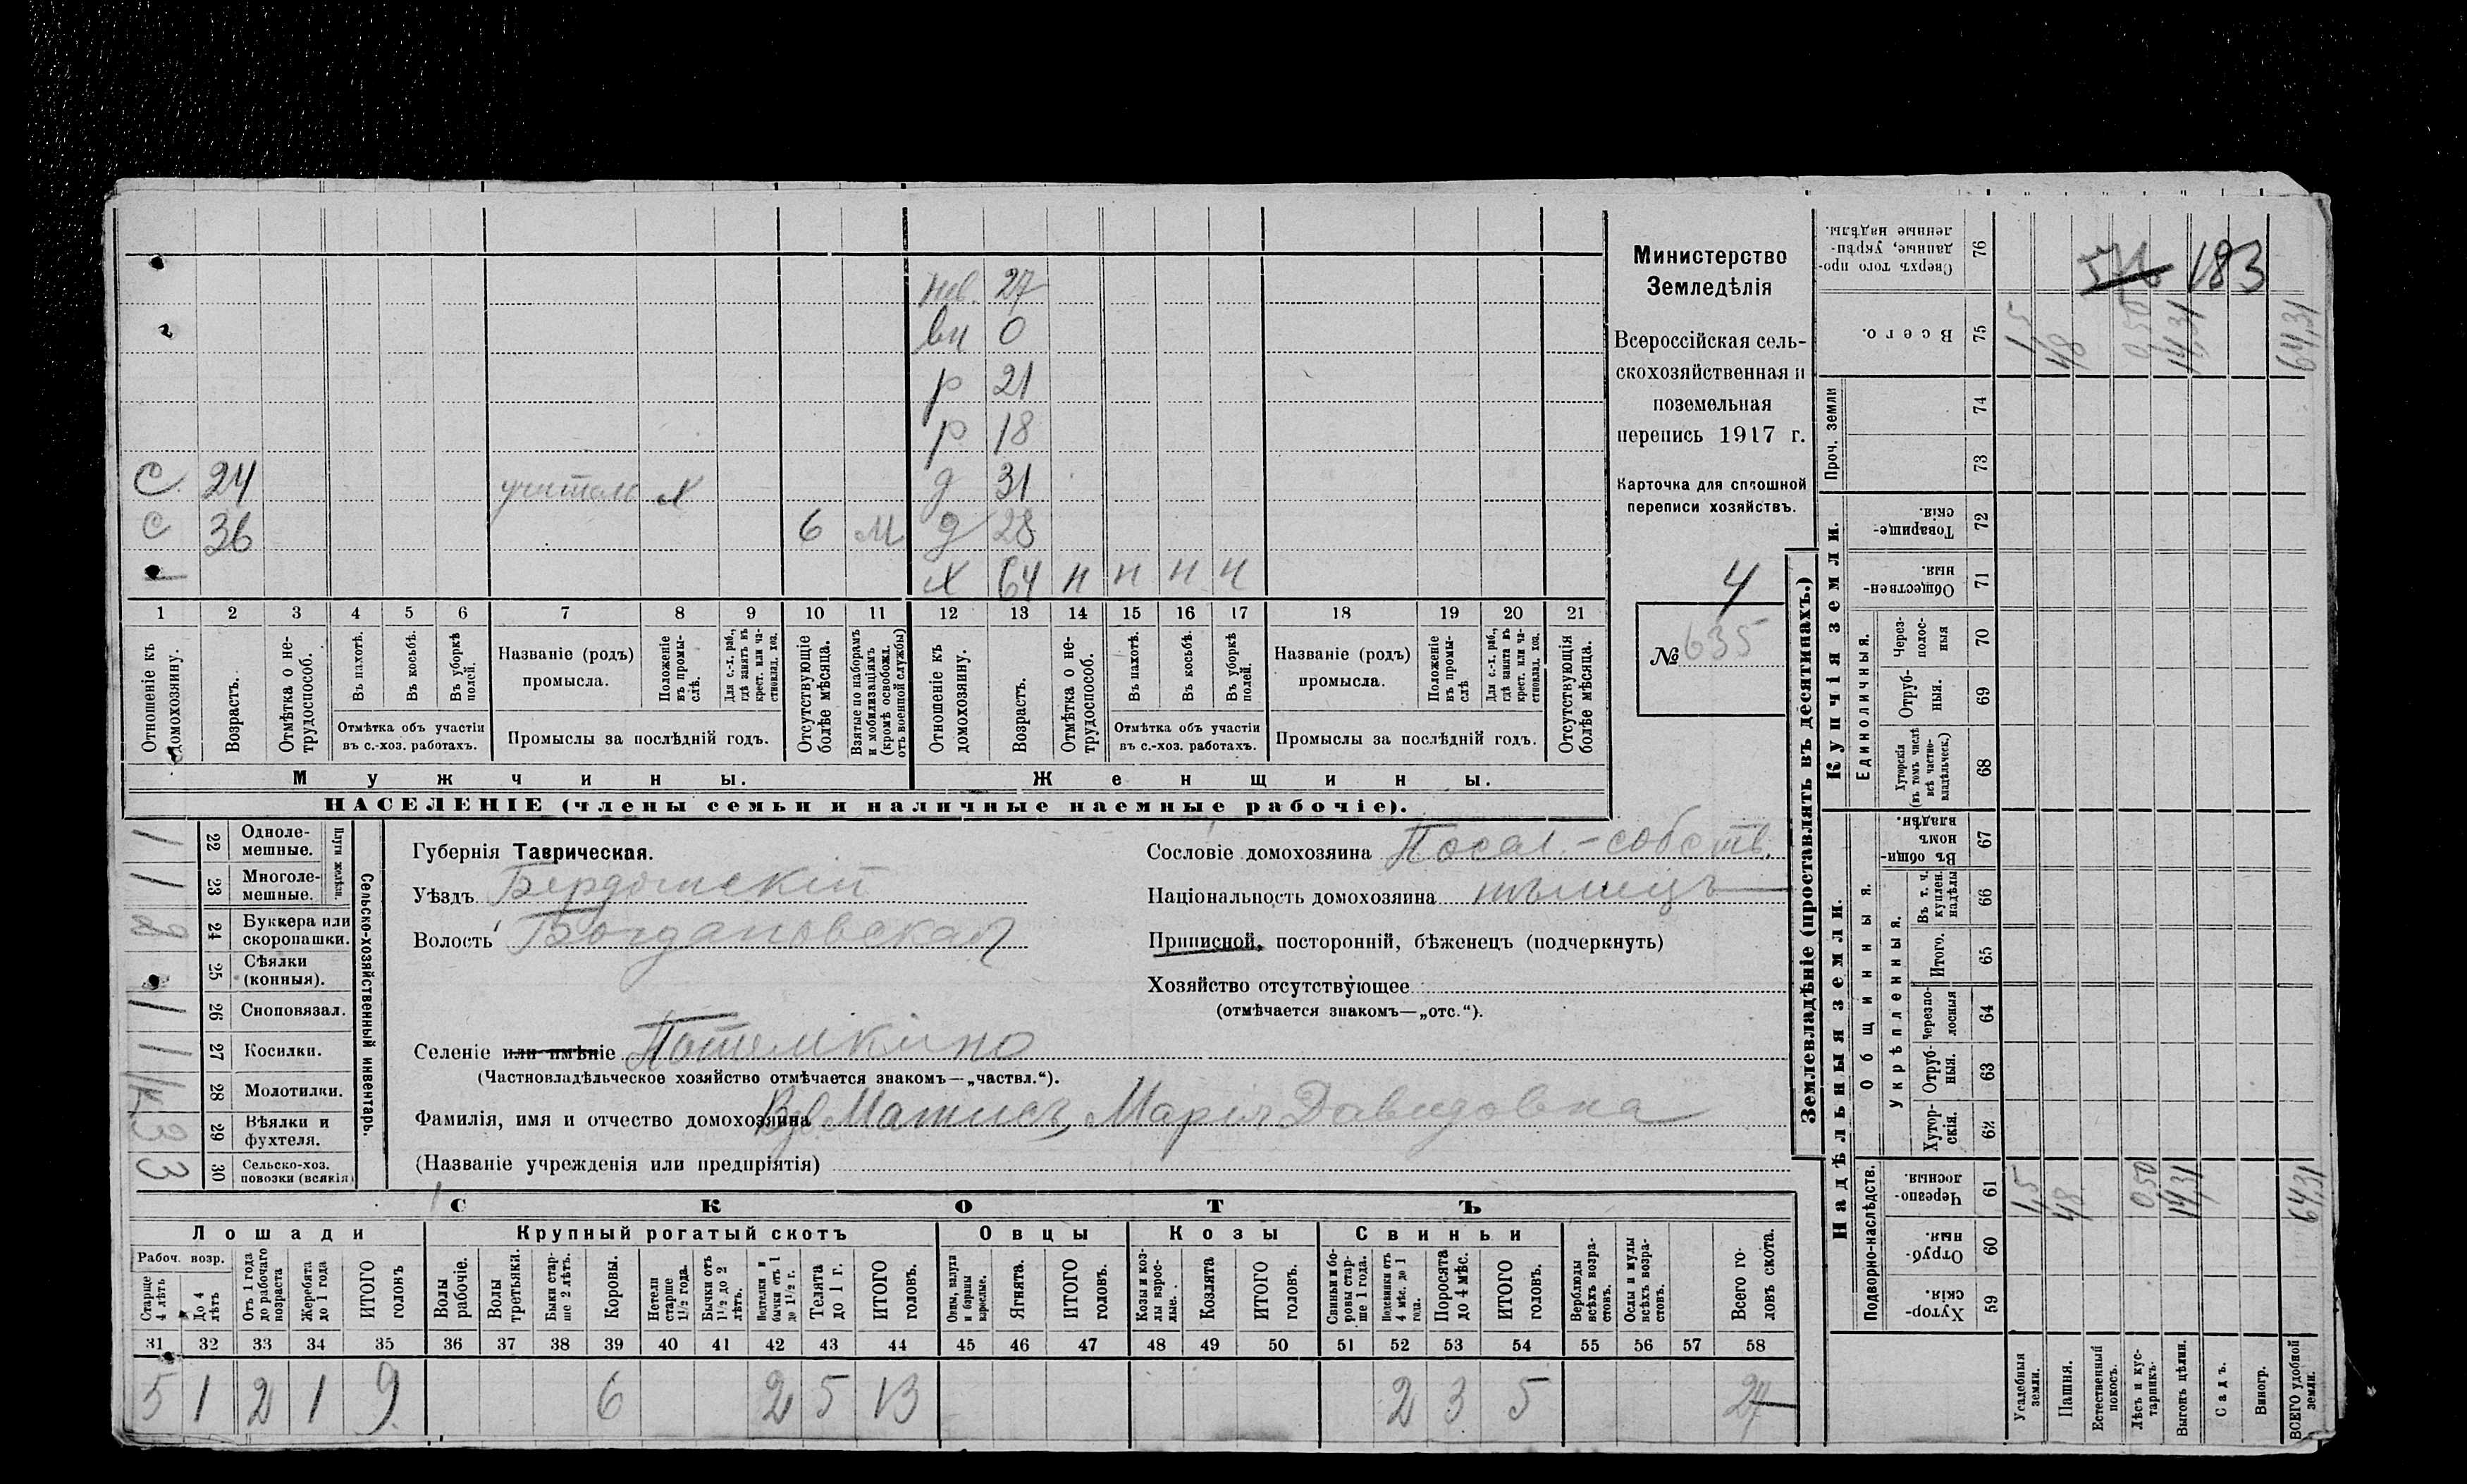 нев. 27
вн 0
р 21
р 18
С 24 учитель Х д 31
С 36 6 м д 28
1 Х 64 н н н н
1 2 3 4 5 6 7 8 9 10 11 12 13 14 15 16 17 18 19 20 21
Отношеніе къ домохозяину.
Возрастъ.
Отмѣтка о нетрудоспособ.
Въ пахотѣ.
Въ косьбѣ.
Въ уборкѣ полей.
Отмѣтка объ участіи въ с.-хоз. работахъ.
Названіе (родъ) промысла.
Положеніе въ промыслѣ.
Для с.-х. раб., гдѣ занятъ въ крест. или частновлад. хоз.
Промыслы за послѣдній годъ.
Отсутствующіе болѣе мѣсяца.
Взятые по наборамъ и мобилизаціямъ (кромѣ освобожд. отъ военной службы)
Отношеніе къ домохозяину.
Возрастъ.
Отмѣтка о нетрудоспособ.
Въ пахотѣ.
Въ косьбѣ.
Въ уборкѣ полей.
Отмѣтка объ участіи въ с.-хоз. работахъ.
Названіе (родъ) промысла.
Положеніе въ промыслѣ
Для с.-х. раб., гдѣ занята въ крест. или частновлад. хоз.
Промыслы за послѣдній годъ.
Отсутствующія болѣе мѣсяца.
Мужчины.
Женщины.
НАСЕЛЕНІЕ (члены семьи и наличные наемные рабочіе).
Министерство
Земледѣлія
Всероссійская сель-
скохозяйственная и
поземельная
перепись 1917 г.
Карточка для сплошной
переписи хозяйствъ.
4
№ 635
Сельско-хозяйственный инвентарь.
Плуги желѣзн.
1 22 Одноле-мешные.
1 23 Многоле-мешные.
2 24 Буккера или скоропашки.
25 Сѣялки (конныя).
1 26 Сноповязал.
1 27 Косилки.
28 Молотилки.
29 Вѣялки и фухтеля.
3 30 Сельско-хоз. повозки (всякія)
Губернія Таврическая.
Уѣздъ Бердянскій
Волость Богдановская
Селеніе или имѣніе Потемкино
(Частновладѣльческое хозяйство отмѣчается знакомъ—„частвл.“).
Фамилія, имя и отчество домохозяина Вд. Матисъ, Марія Давидовна
(Названіе учрежденія или предпріятія)
Сословіе домохозяина Посел.-собств.
Національность домохозяина нѣмецъ
Приписной, посторонній, бѣженецъ (подчеркнуть)
Хозяйство отсутствующее
(отмѣчается знакомъ—„отс.“).
СКОТЪ
Лошади Крупный рогатый скотъ Овцы Козы Свиньи
Рабоч. возр.
Старше 4 лѣтъ
До 4 лѣтъ
Отъ 1 года до рабочаго возраста
Жеребята до 1 года
ИТОГО головъ
Волы рабочіе.
Волы третьяки.
Быки старше 2 лѣтъ.
Коровы.
Нетели старше 1½ года.
Бычки отъ 1½ до 2 лѣтъ.
Подтелки и бычки отъ 1 до 1½ г.
Телята до 1 г.
ИТОГО головъ.
Овцы, валухи и бараны взрослые.
Ягнята.
ИТОГО головъ.
Козы и козлы взрослые.
Козлята
ИТОГО головъ.
Свиньи и боровы старше 1 года.
Подсвинки отъ 4 мѣс. до 1 года.
Поросята до 4 мѣс.
ИТОГО головъ.
Верблюды всѣхъ возрастовъ.
Ослы и мулы всѣхъ возрастовъ.
Всего головъ скота.
31 32 33 34 35 36 37 38 39 40 41 42 43 44 45 46 47 48 49 50 51 52 53 54 55 56 57 58
5 1 2 1 9 6 2 5 13 2 3 5 27
Землевладѣніе (проставлять въ десятинахъ.)
Надѣльныя земли.
Купчія земли.
Подворно-наслѣдств.
Общинныя.
Укрѣпленныя.
Единоличныя.
Проч. земли
183
Сверхъ того проданные, укрѣпленные надѣлы. 76
Всего. 75 1,5 48 0,50 14,31 64,31
74
73
Товарищескія. 72
Общественныя. 71
Черезполосныя 70
Отрубныя. 69
Хуторскія (въ томъ числѣ всѣ частновладѣльческ.) 68
Въ общинномъ владѣн. 67
Въ т. ч. куплен. надѣлы 66
Итого. 65
Черезполосныя 64
Отрубныя. 63
Хуторскія. 62
Черезполосныя. 61 1,5 48 0,50 14,31 64,31
Отрубныя. 60
Хуторскія. 59
Усадебныя земли.
Пашня.
Естественный покосъ.
Лѣсъ и кустарникъ.
Выгонъ цѣлин.
Садъ.
Виногр.
ВСЕГО удобной земли.